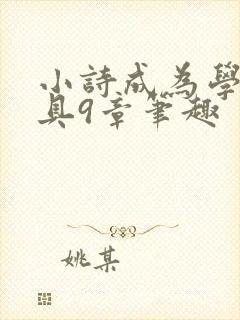 小詩成為學
具9章筆趣
姚某